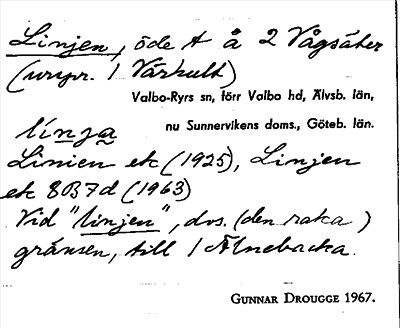 Linjen, öde t å 2 Vågsäter
(urspr. 1 Värhult)
Valbo-Ryrs sn, förr Valbo hd, Älvsb. län,
nu Sunnervikens doms., Göteb. län.
línja
Linien ek (1925), Linjen
ek 8B7d (1963)
Vid "linjen", dvs. (den raka)
gränsen, till 1 Älnebacka.
GUNNAR DROUGGE 1967.